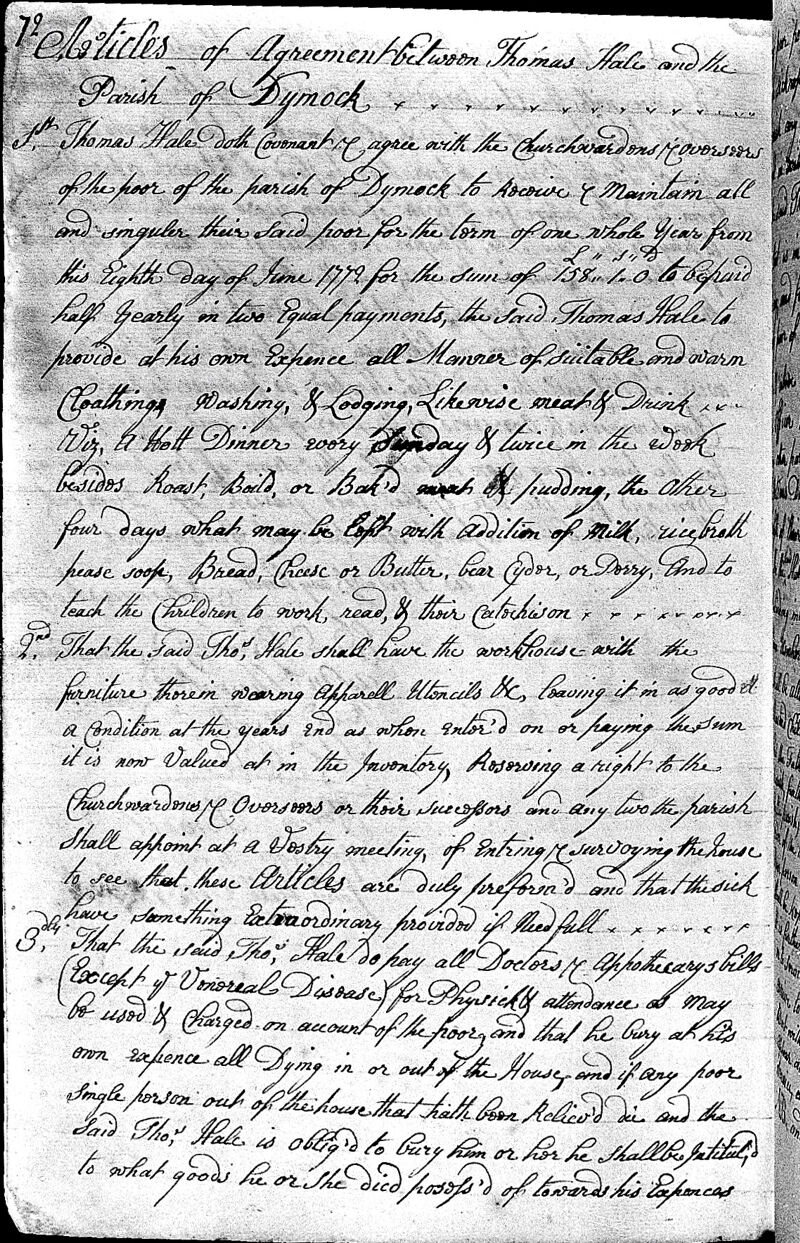 72
Articles of Agreement between Thomas Hale and the
Parish of Dymock
1st. Thomas Hale doth Covenant & agree with the Churchwardens & Overseers
of the poor of the parish of Dymock to Receive & Maintain all
and singuler their said poor for the term of one whole Year from
this Eighth day of June 1772 for the sum of £158,, 1s,, 0D to be paid
half Yearly in two Equal payments, the said Thomas Hale to
provide at his own Expence all Manner of suitable and warm
Cloathing, Washing, & Lodging, Likewise meat & Drink
Viz, A Hott Dinner every Sunday & twice in the Week
besides Roast, Boild, or Bak'd meat & pudding, the Other
four days what may be left with addition of Milk, rice broth
pease soop, Bread, Cheese or Butter, bear Cyder, or Perry, And to
teach the Chrildren to work, read, & their Catechison
2nd. That the said Thos. Hale shall have the workhouse with the
furniture therein wearing Apparell Utencils &c, leaving it in as good
a Condition at the years End as when Enter'd on or paying the sum
it is now Valued at in the Inventory, Reserving a right to the
Churchwardens & Overseers or their successors and any two the parish
Shall appoint at a Vestry meeting, of Entring & surveying the house
to see that these Articles are duly preform'd and that the sick
have something Extraordinary provided if Needfull
3dly. That the said Thos. Hale do pay all Doctors & Appothecarys bills
(Except ye Venereal Disease) for Physick & attendance as may
be used & Charged on account of the poor, and that he bury at his
own Expence all Dying in or out of the House, and if any poor
single person out of the house that hath been Reliev'd die and the
said Thos. Hale is oblig'd to bury him or her he shall be Intitul'd
to what goods he or She died posess'd of towards his Expences